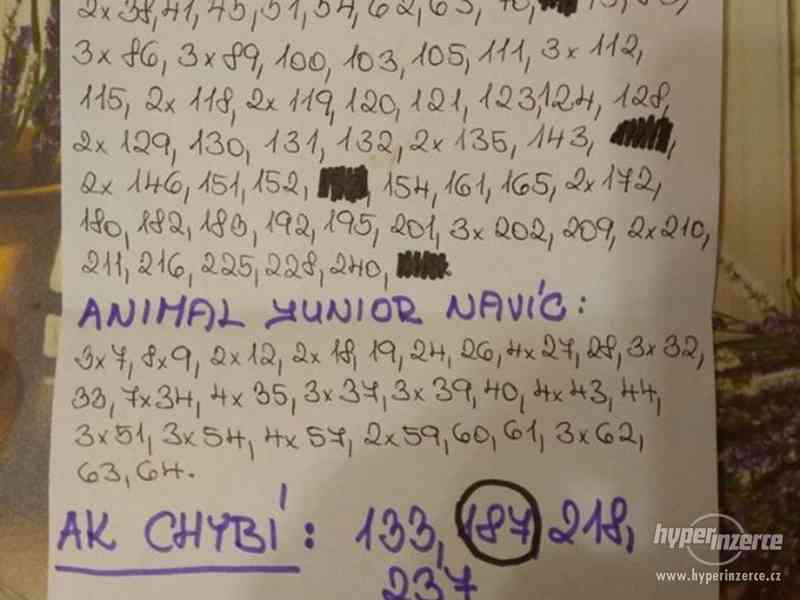 2x38,41,45,51,54,62,63,
3x86, 3x89, 100, 103, 105, 111, 3x112,
115, 2x118, 2x119, 120, 121, 123,124, 128,
2x129, 130, 131, 132, 2x135, 143,
2x146, 151, 152, 154, 161, 165, 2x172,
180, 182, 183, 192, 195, 201, 3x202, 209, 2x210,
211, 216, 225, 228, 240,
ANIMAL YUNIOR NAVÍC:
3x7, 8x9, 2x12, 2x18, 19, 24, 26, 4x27, 28, 3x32,
33, 7x34, 4x35, 3x37, 3x39, 40, 4x43, 44,
3x51, 3x54, 4x57, 2x59, 60, 61, 3x62,
63, 64.
AK CHYBÍ: 133, 187, 218,
237
hyperinzerce
www.hyperinzerce.cz